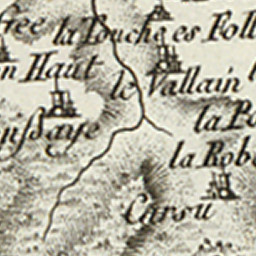 la Touche es Foll
n Haut
le Vallain
la Po
la Robe
Carsu